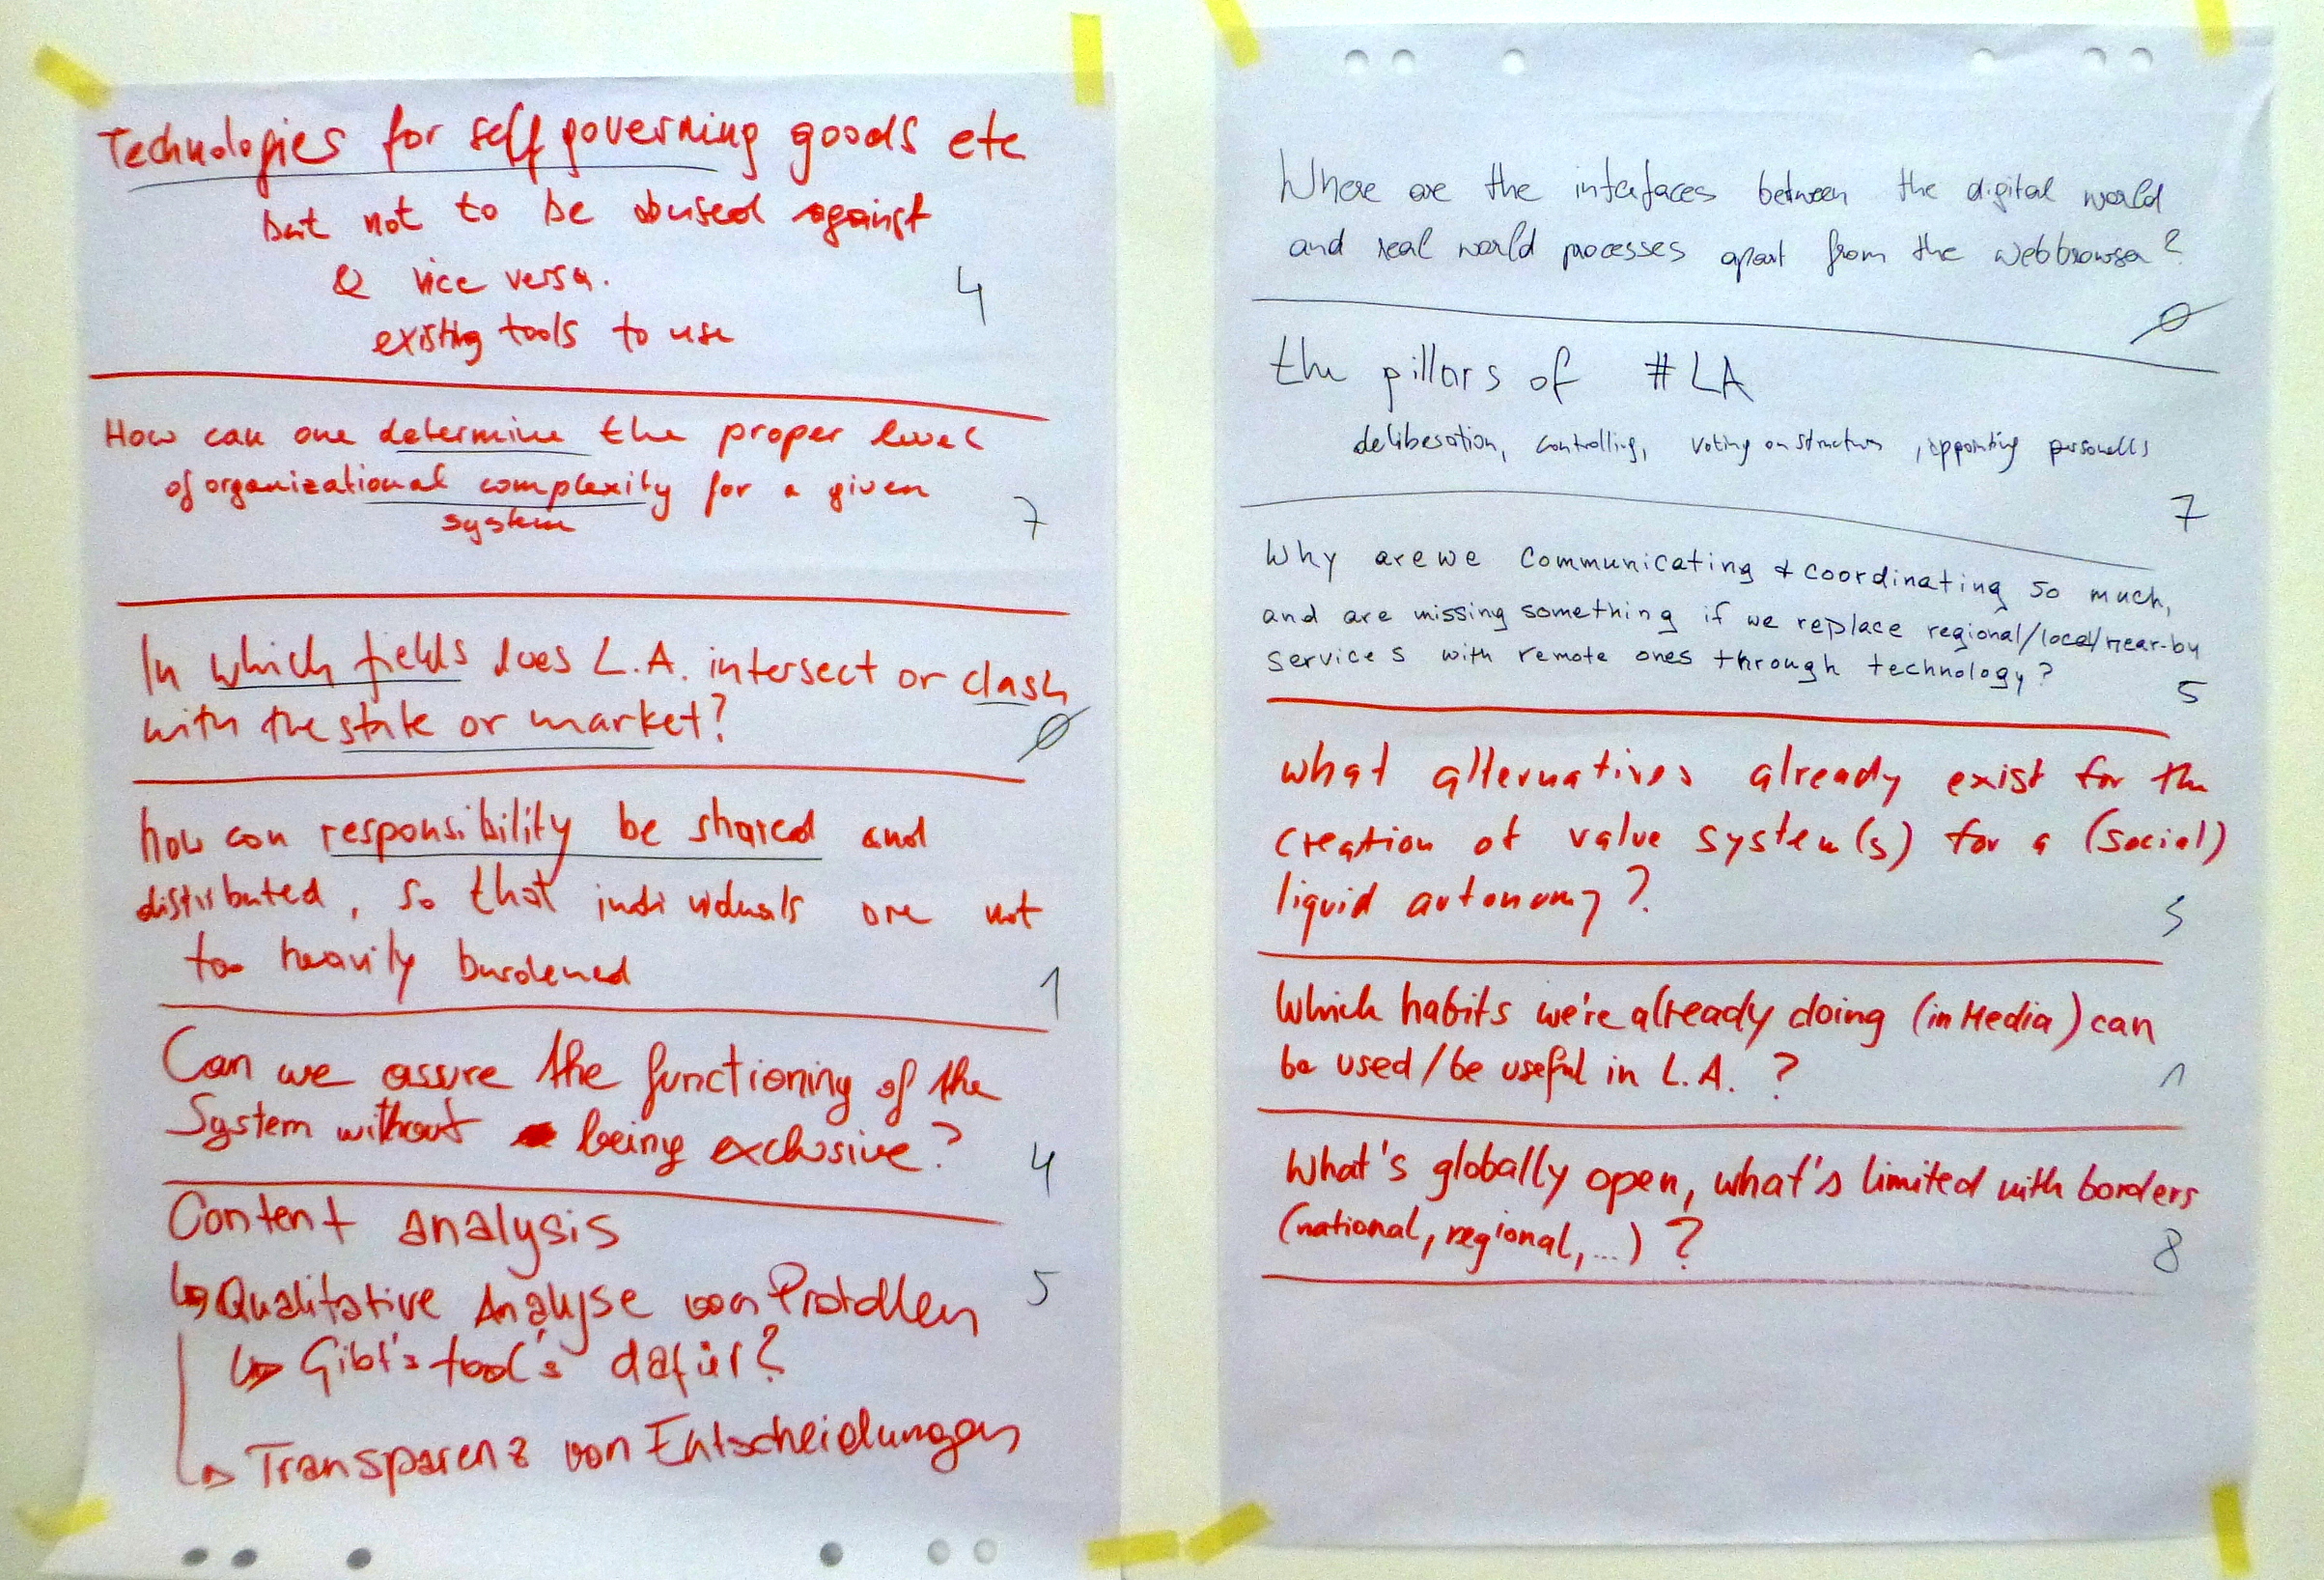 Technologies for self governing goods etc
but not to be abused against
& vice versa.
4
existing tools to use
How can one determine the proper level
of organizational complexity for a given
system
7
In which fields does L.A. intersect or clash
with the state or market?
Ø
how can responsibility be shared and
distributed, so that individuals are not
too heavily burdened
1
Can we assure the functioning of the
System without being exclusive?
4
Content analysis
↳ Qualitative Analyse von Protollen
5
↳ Gibt's tool's dafür?
↳ Transparenz von Entscheidungen
Where are the interfaces between the digital world
and real world processes apart from the webbrowser?
Ø
the pillars of #LA
deliberation, controlling, voting on structures, appointing personells
7
Why are we communicating & coordinating so much,
and are missing something if we replace regional/local/near-by
services with remote ones through technology?
5
what alternatives already exist for the
creation of value system(s) for a (social)
liquid autonomy?
5
Which habits we're already doing (in Media) can
be used/be useful in L.A. ?
1
What's globally open, what's limited with borders
(national, regional, ...) ?
8